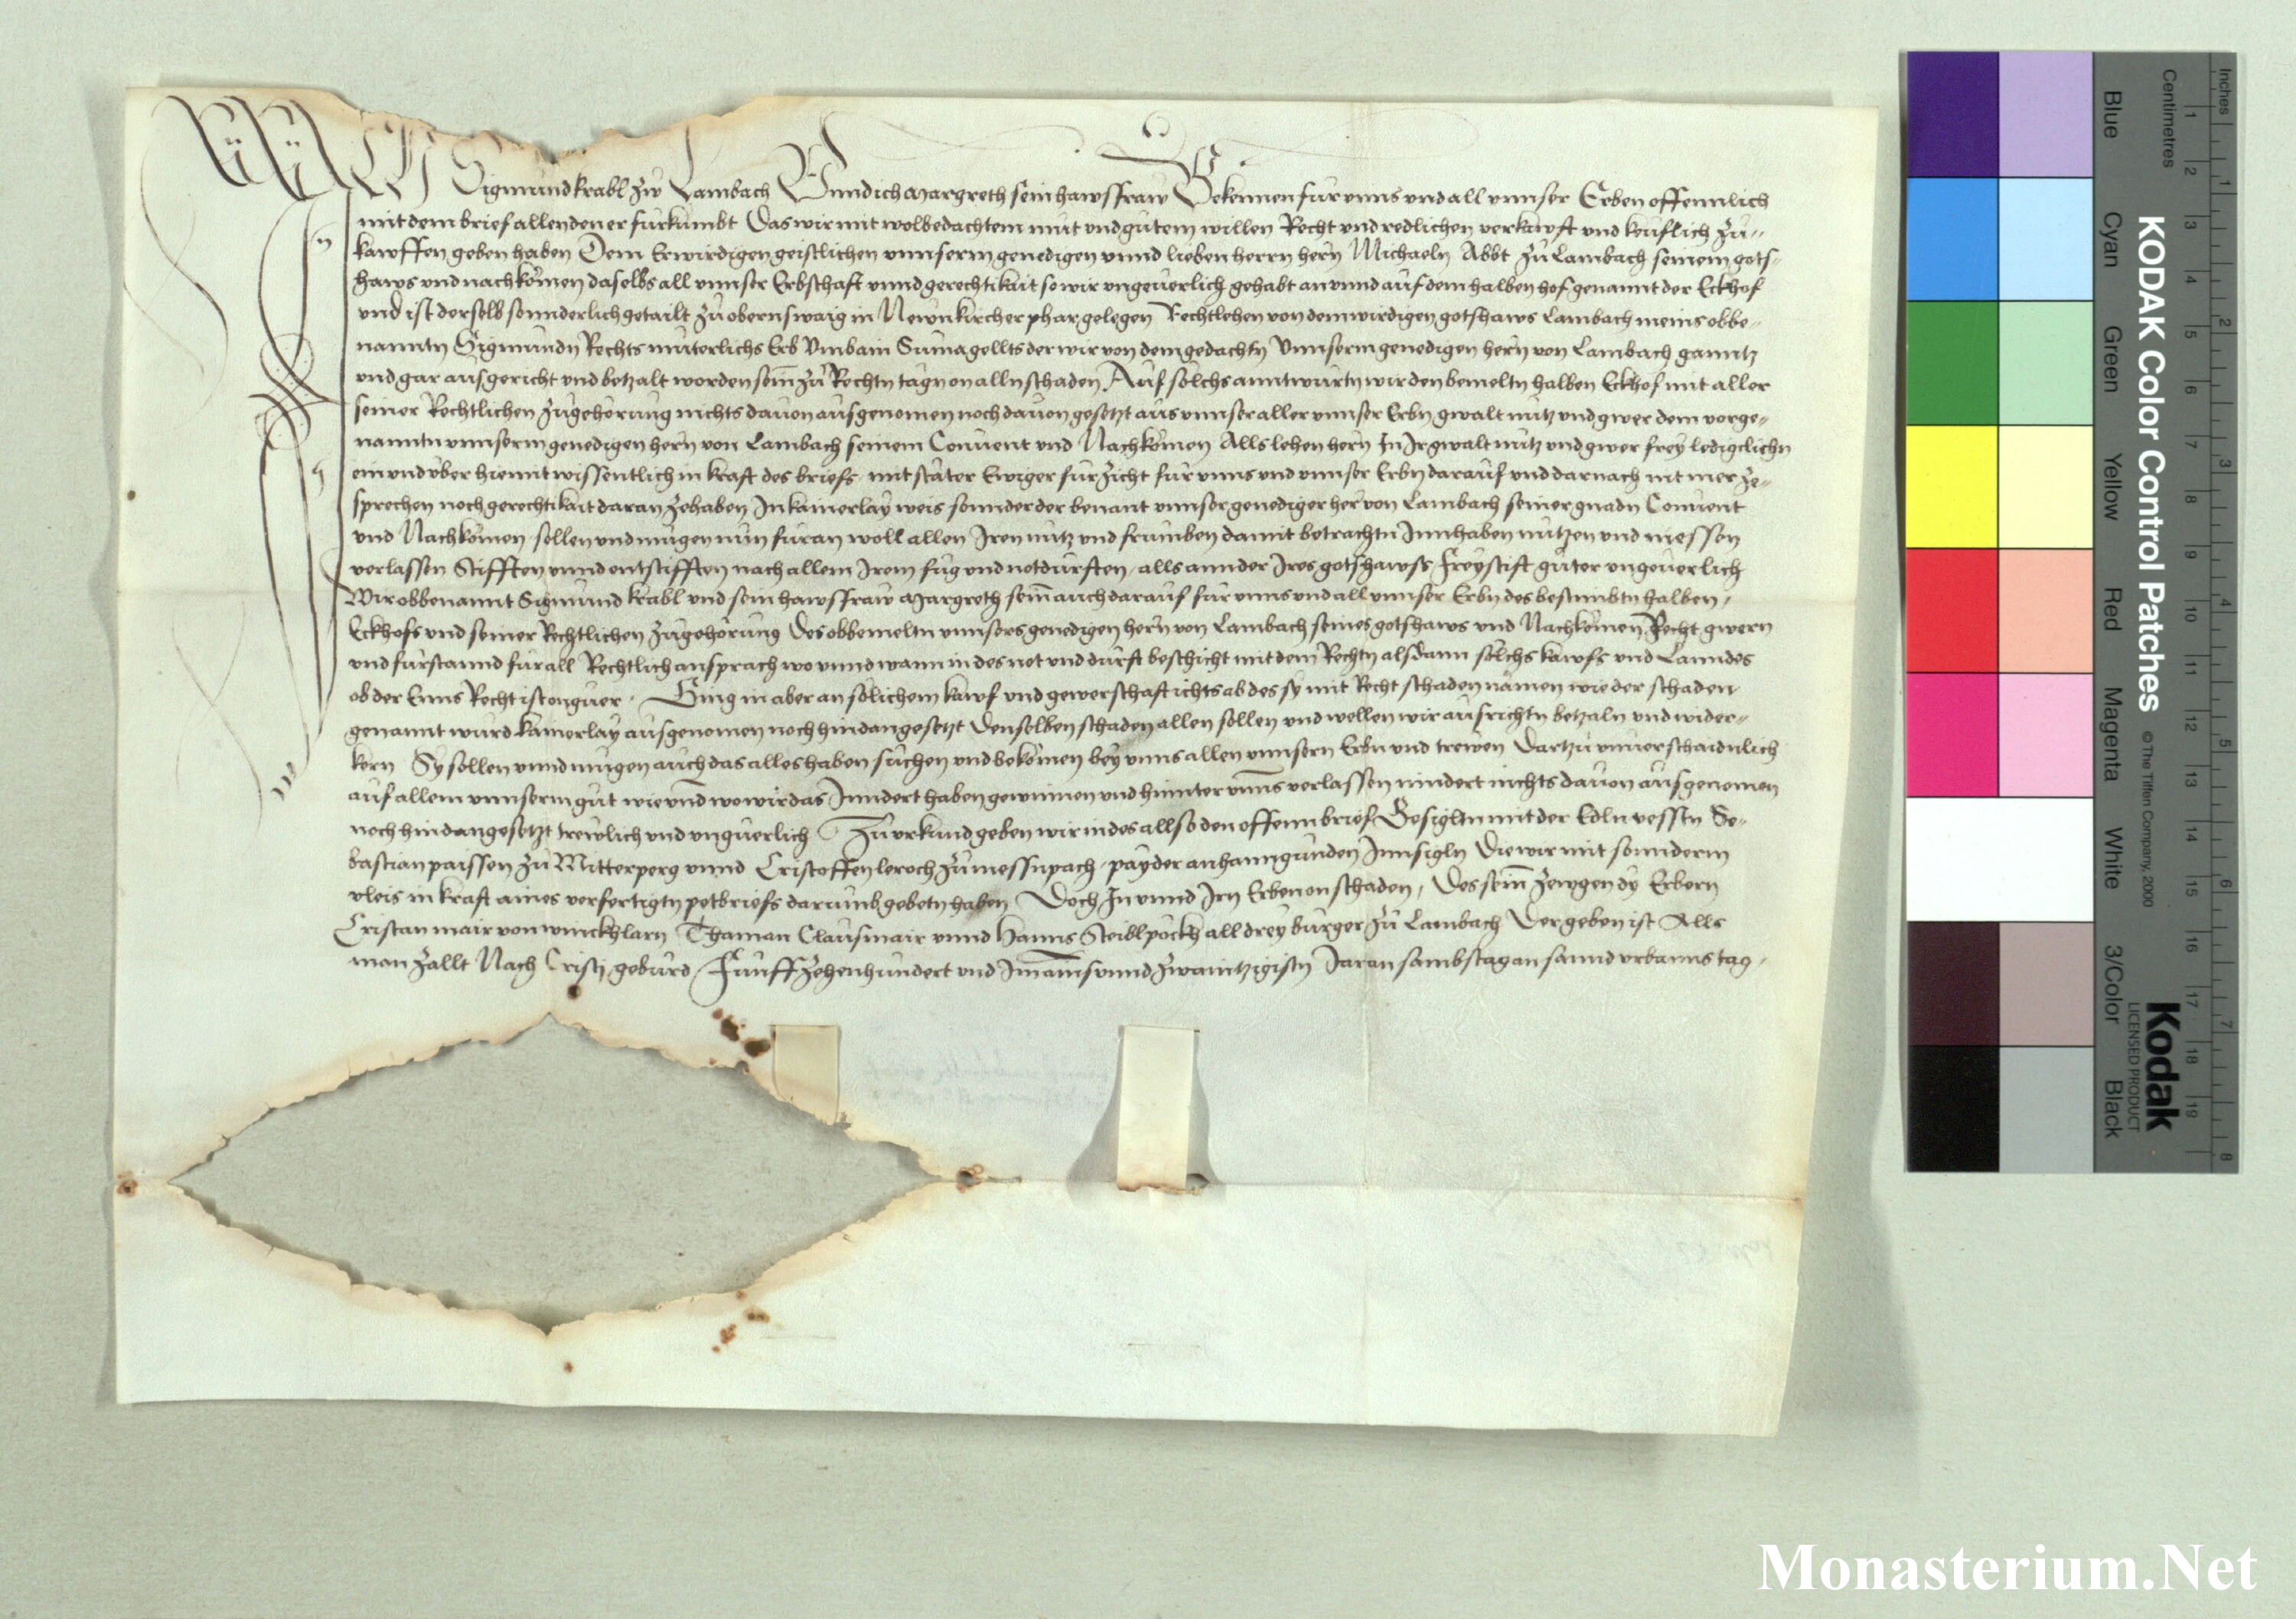 Ich Sigmund krabl zw Lambach Vnnd ich Margreth sein hawsfraw Bekennen fur vnns vnd all vnnser Erben offennlich
mit dem brief allen den er furkumbt Das wir mit wolbedachtem mut vnd gutem willen Recht vnd redlichen verkawft vnd keuflich zu
kawffen geben haben Dem Erwirdigen geistlichen vnnserm genedigen vnnd lieben herrn hern Michaeln Abbt zu Lambach seinem gots
haws vnd nachkomen daselbs all vnnser Erbschaft vnnd gerechtikait so wir vngeuerlich gehabt an vnnd auf dem halben hof genannt der Eckhof
vnd ist derselb sonnderlich getailt zu obernswaig in Newnkircher phar gelegen Rechtlehen von dem wirdigen gotshaws Lambach meins obbe
nanntn Sigmundn Rechts muterlichs Erb Vmb ain Suma gellts der wir von dem gedachtn Vnnserm genedigen hern von Lambach ganntz
vnd gar ausgericht vnd betzalt worden sein zu Rechtn tagn on alln schaden Auf solchs anntwurtn wir den bemeltn halben Eckhof mit aller
seiner Rechtlichen zugehorung nichts dauon ausgenomen noch dauon gesetzt aus vnnser aller vnnser Erbn gwalt nutz vnd gwer dem vorge
nanntn vnnserm genedigen hern von Lambach seinem Conuent vnd Nachkomen Alls lehen hern In Ir gwalt nutz vnd gwer frey lediclichn
ein vnd vber hiemit wissentlich in kraft des briefs mit stater Ewiger furzicht fur vnns vnd vnnser Erbn darauf vnd darnach nit mer ze
sprechen noch gerechtikait daran zehaben In kainerlay weis sonnder der benant vnnser genediger her von Lambach seiner gnadn Conuent
vnd Nachkomen sollen vnd mugen nun furan woll allen Iren nutz vnd frumben damit betrachtn Innhaben nutzen vnd niessen
verlassen Stifften vnnd entstifften nach allem Irem fug vnd notdurften alls annder Ires gotshawss freystift guter vngeuerlich
Wir obbenannt Sigmund krabl vnd sein hawsfraw Margreth sein auch darauf fur vnns vnd all vnnser Erbn des bestimbtn halben
Eckhofs vnd seiner Rechtlichen zugehorung Des obbemeltn vnnsers genedigen hern von Lambach seines gotshaws vnd Nachkomen Recht gwern
vnd furstannd fur all Rechtlich ansprach wo vnnd wann in des not vnd durft beschicht mit dem Rechtn als dann solchs kawfs vnd Lanndes
ob der Enns Recht ist onguer Ging in aber an solichem kawf vnd gewerschaft ichts ab des sy mit Recht schaden namen wie der schaden
genannt wurd kainerlay ausgenomen noch hindangesetzt Denselben schaden allen sollen vnd wellen wir ausrichtn betzaln vnd wider
kern Sy sollen vnnd mugen auch das alles haben suchen vnd bekomen bey vnns allen vnnsern Erbn vnd trewen Dartzu vnuerschaidnlich
auf allem vnnserm gut wie vnd wo wir das Inndert haben gewinnen vnd hinnter vnns verlassen nindert nichts dauon ausgenomen
noch hindangesetzt trewlich vnd vnguerlich Zu vrkund geben wir in des allso den offenn brief Besigltn mit der Edln vesstn Se
bastian paissen zu Mitterperg vnnd Cristoffen leroch zu messnpach payder anhanngunden Innsigln Die wir mit sonnderm
vleis in kraft aines verfertigtn petbriefs darumb gebetn haben Doch In vnnd Irn Erben on schaden Des sein zewgen dy Erbern
Cristan mair von winckhlarn Thaman Clausmair vnnd Hanns Steiblpockh all drey burger zu Lambach Der geben ist Alls
man zallt Nach Cristj geburd Funffzehenhundert vnd Im ains vnnd zwaintzigistn Jar an sambstag an sannd vrbanns tag
KODAK Color Control Patches
© The Tiffen Company, 2000
Kodak
LICENSED PRODUCT
Inches
Centimetres
Blue
Cyan
Green
Yellow
Red
Magenta
White
3/Color
Black
Monasterium.Net